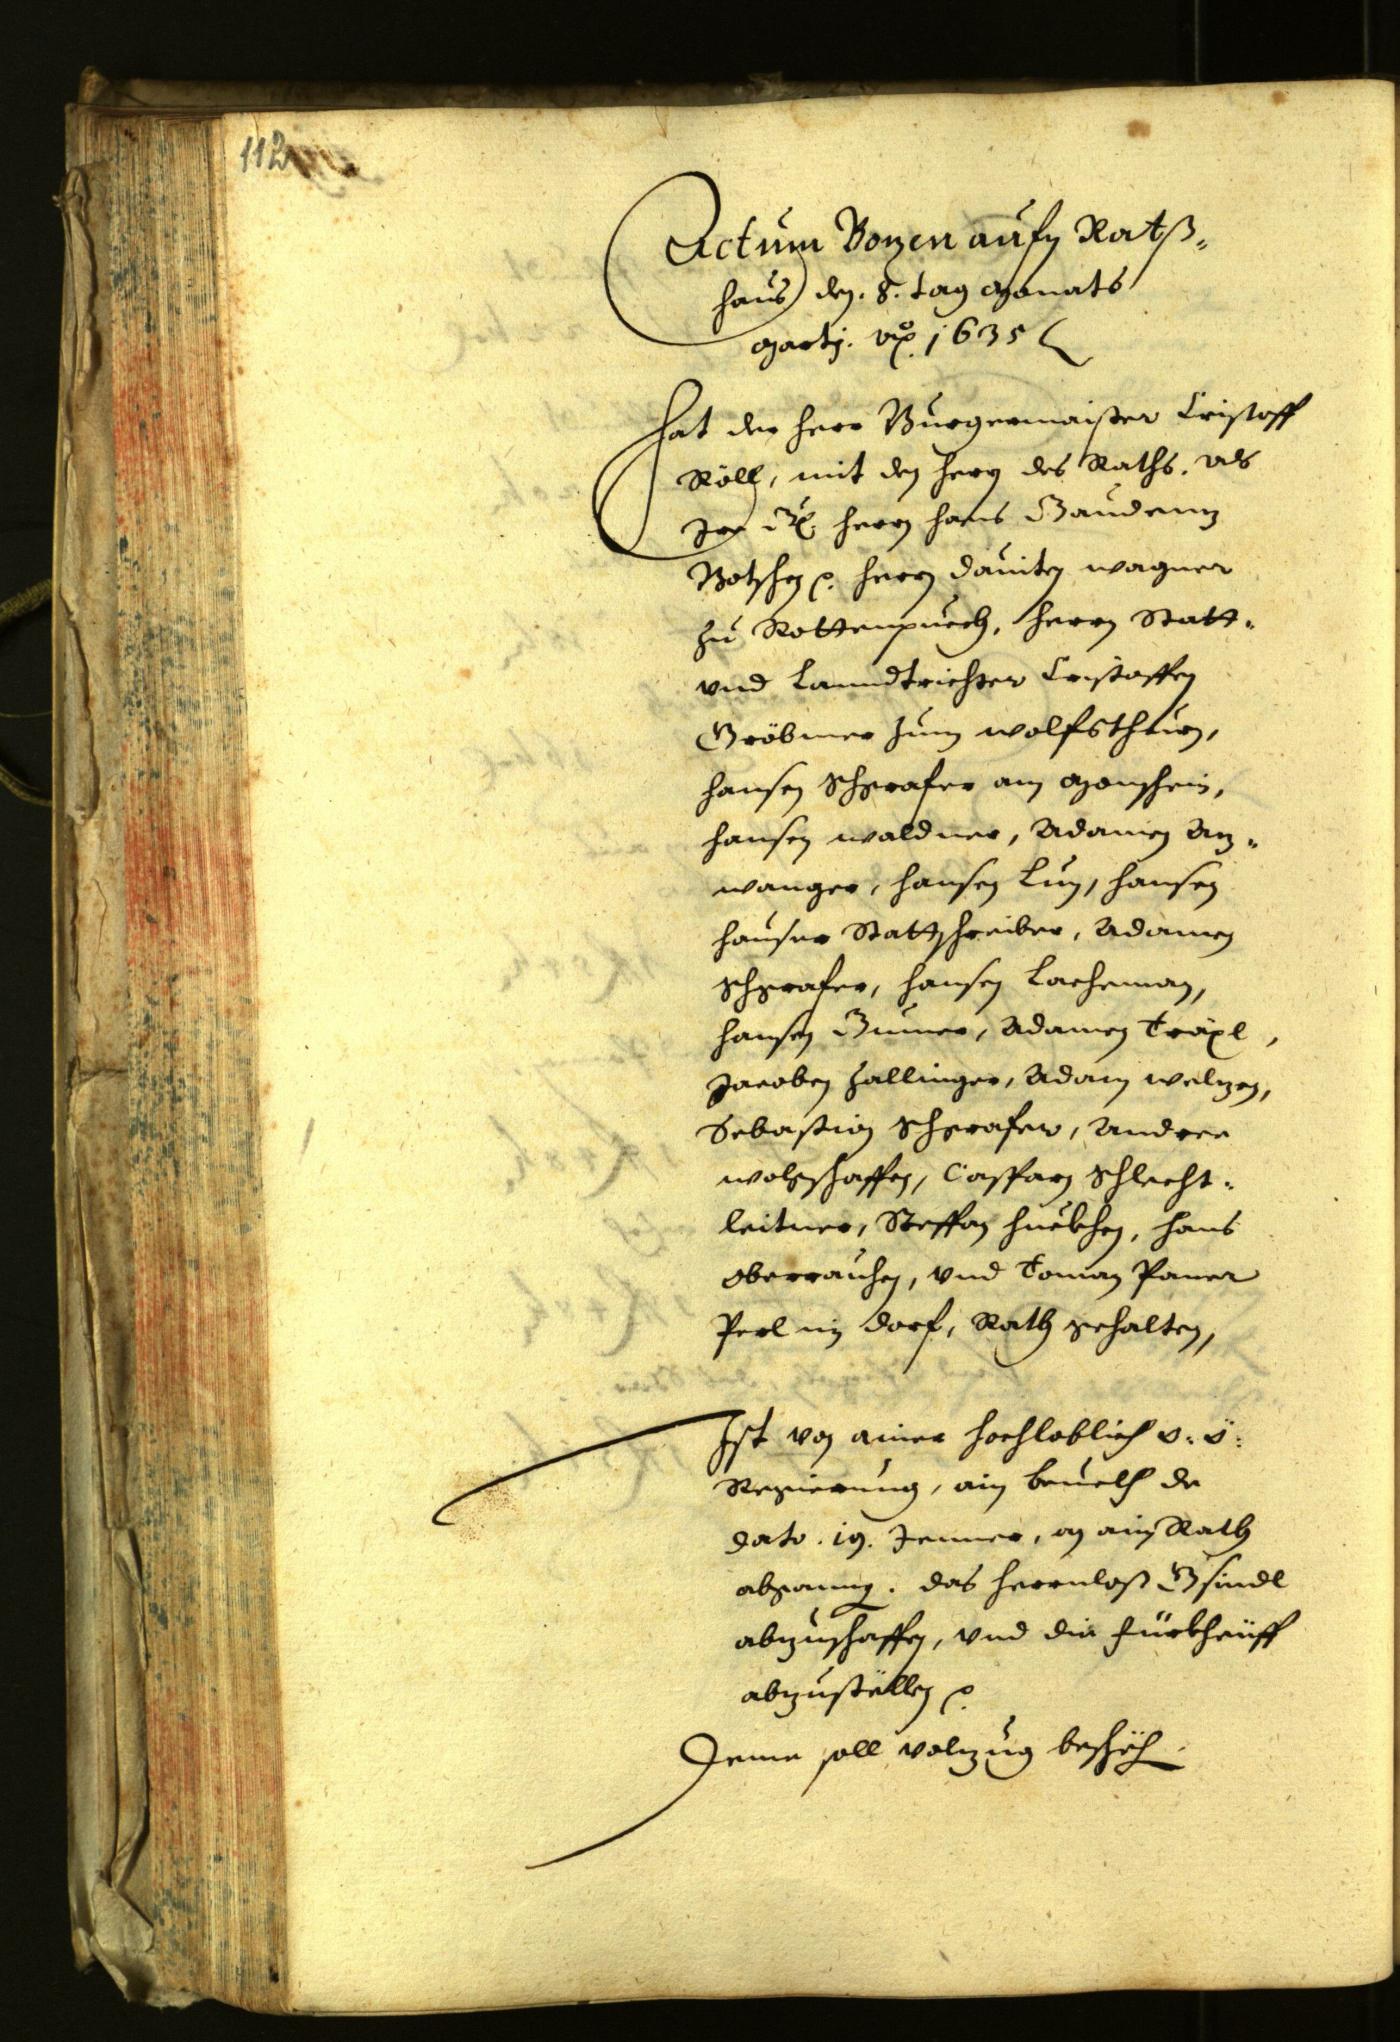 112
Actum Bozen aufn Ratß„
haus den. 8. tag Monats
Martÿ. Ao. 1635
Hat der herr Burgermaister Cristoff
Röll, mit den herrn des Raths. als
Ir herrn Hans Gaudenz
Botschen p. herrn Dauiten Wagner
zu Rottenpuech, herrn Statt„
vnd Lanndtrichter Cristoffen
Gröbmer zum Wolfsthurn,
Hansen Schgrafer am Monschein,
Hansen Waldner, Adamen An„
wanger, Hansen Lun, Hansen
Hauser Stattschreiber, Adamen
Schgrafer, Hansen Lacheman,
Hansen Gumer, Adamen Träxl,
Jacoben Zallinger, Adam Welzen,
Sebastian Schgrafer, Andree
Caspарn Schlecht„
leitner, Steffan Hueber, Hans
Oberrauchen, vnd Toman Pauer
Perl im Dorf, Rath gehalten,
Ist von ainer hochloblich o: ö:
Regierung, ain beuelch de
dato. 19. Jenner, an ain Rath
abgang. das herrnloß Gsindl
abzuschaffen, vnd die Fürkheuff
abzustöllen p.
Deme soll volzug beschech.